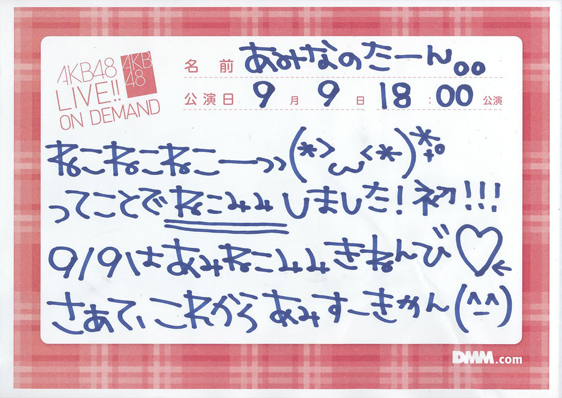 AKB48
LIVE!!
ON DEMAND
AKB
48
名 前 あみなのたーん。。
公演日 9 月 9 日 18 : 00 公演
ねこねこねこーっっ(*>ω<*)*+°
ってことでねこみみしました!初!!!
9/9はあみねこみみきねんび♡←
さあて、これからあみすーきかん(^_^)
DMM.com